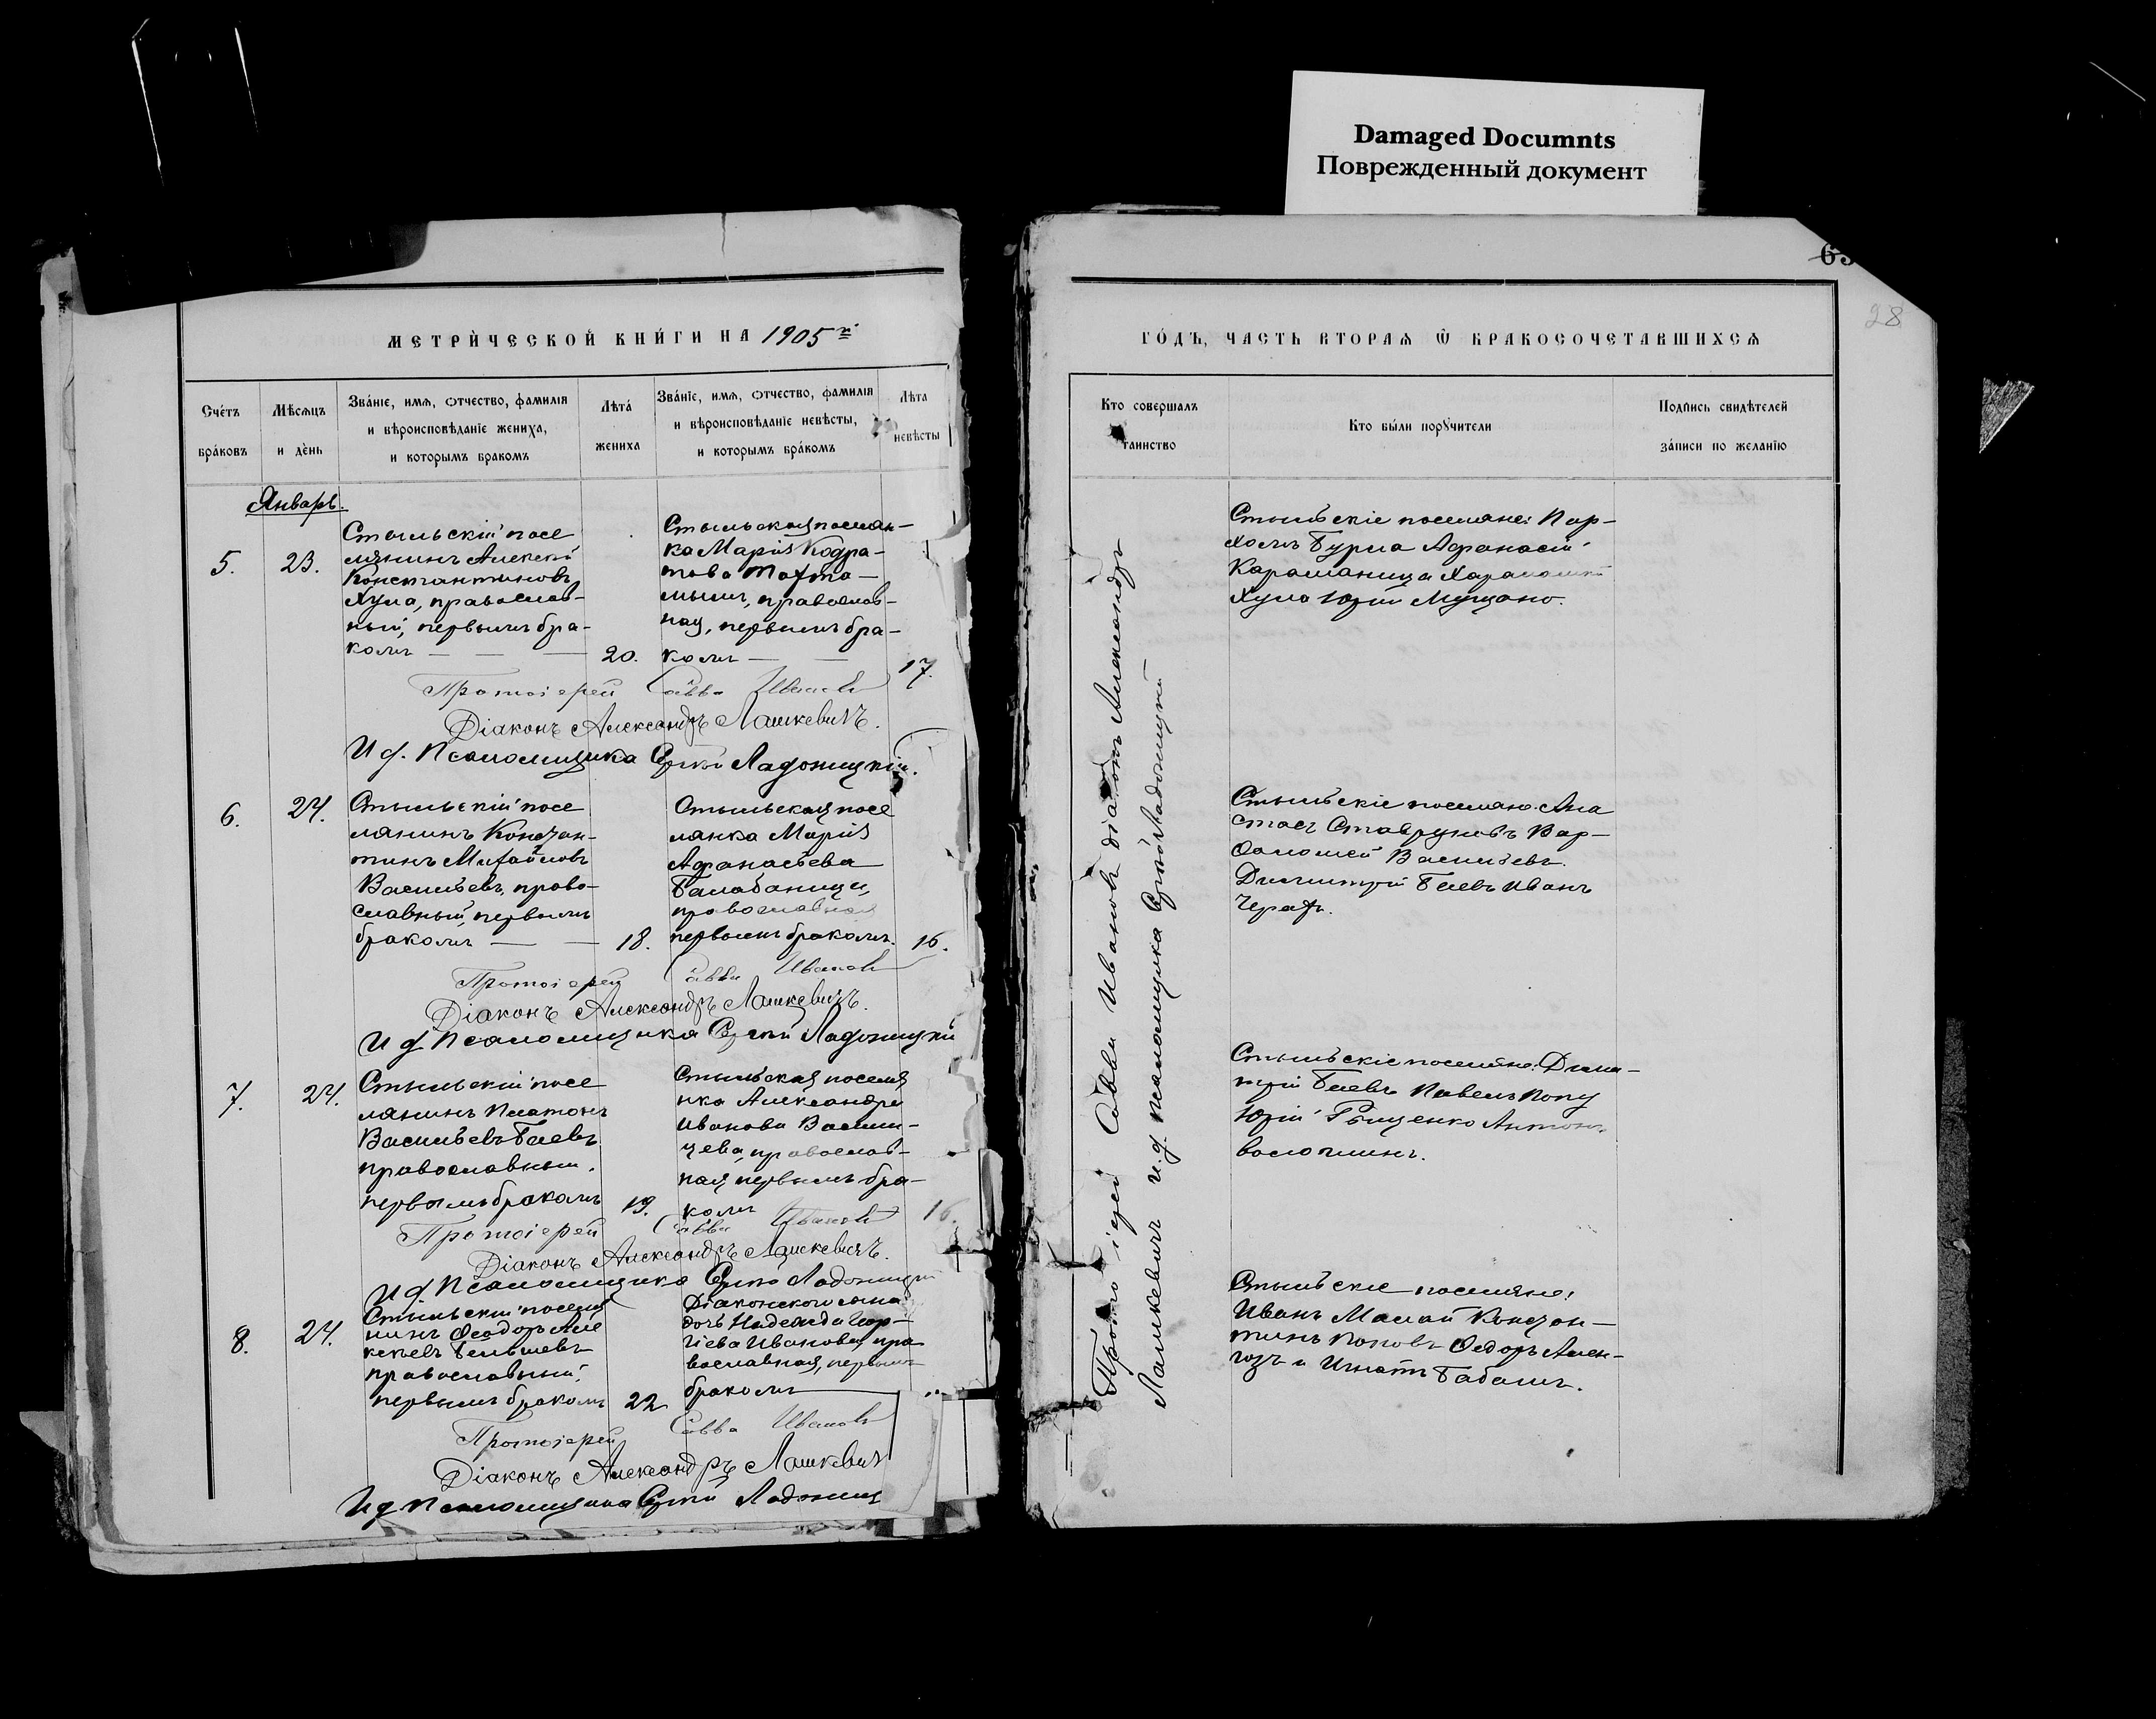 Damaged Documnts
Поврежденный документ
28
МЕТРИ́ЧЕСКОЙ КНИ́ГИ НА 1905й
Сче́тъ бра́ковъ
Мѣсѧцъ и де́нь
Зва́нїе, имѧ, ѻтчество, фамилїѧ
и вѣроисповѣданїе жениха,
и которымъ бракомъ
Лѣта́ жениха
Зва́нїе, имѧ, ѻтчество, фамилїѧ
и вѣроисповѣданїе невѣсты,
и которымъ бра́комъ
Лѣта невѣсты
Январь.
5.
23.
Стыльскій посе
лянинъ Алексѣй
Константиновъ
Хула, православ-
ный, первымъ бра-
комъ
20.
Стыльская поселян-
ка Марія Кодра-
това
православ-
ная, первымъ бра-
комъ
17.
Протоіерей Савва Ивановъ
Діаконъ Александръ Лашкевичъ.
И д. Псаломщика Сергѣй Ладоницкій.
6.
24.
Стыльскій посе
лянинъ Констан-
тинъ Михайловъ
Васильевъ, право-
славный, первымъ
бракомъ
18.
Стыльская посе
лянка Марія
Афанасьева
православная
первымъ бракомъ.
16.
Протоіерей Савва Ивановъ
Діаконъ Александръ Лашкевичъ.
И д Псаломщика Сергѣй Ладоницкій
7.
24.
Стыльскій посе
лянинъ Платонъ
Васильевъ Баевъ
православный,
первымъ бракомъ
19.
Стыльская поселя
нка Александра
Иванова Василь-
чева, православ-
ная первымъ бра-
комъ
16.
Протоіерей Савва Ивановъ
Діаконъ Александръ Лашкевичъ.
И д Псаломщика Сергѣй Ладоницкій
8.
24.
Стыльскій поселя
нинъ Ѳеодоръ Але
ксѣевъ
православный,
первымъ бракомъ
22
Діаконского сына
дочь Надежда Геор-
гіева Иванова, пра
вославная, первымъ
бракомъ
Протоіерей Савва Ивановъ
Діаконъ Александръ Лашкевич
И д Псаломщика Сергѣй Ладониц
ГО́ДЪ, ЧАСТЬ ВТОРАѦ Ѿ БРАКОСОЧЕТАВШИХСѦ
Кто совершалъ таинство
Кто бы́ли порꙋчители
По́дпись свидѣтелей за́писи по желанїю
Протоіерей Савва Ивановъ діаконъ Александръ
Лашкевичъ и.д. псаломщика Сергѣй Ладоницкій
Стыльскіе поселяне: Пар-
Бурма Афанасій
Хула Юрій
Стыльскіе поселяне: Ана
стасъ Вар-
фоломей Васильевъ.
Димитрій Баевъ Иванъ
Стыльскіе поселяне: Дими-
трій Баевъ Павелъ Попу
Юрій Антонъ
Стыльскіе поселяне:
Иванъ Констан-
тинъ Поповъ Ѳедоръ
и Игнатъ